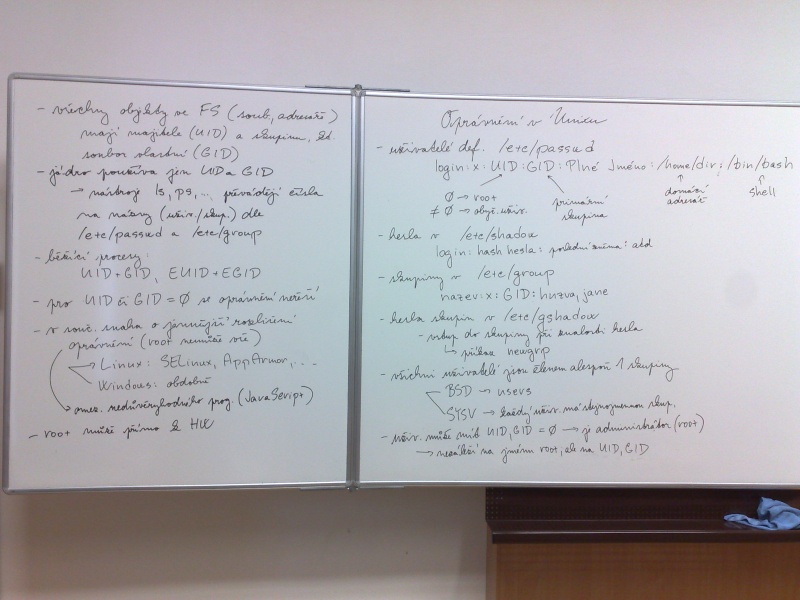 - všechny objekty ve FS (soub., adresáře)
mají majitele (UID) a skupinu, kt.
soubor vlastní (GID)
- jádro používá jen UID a GID
→ nástroje ls, ps, ... převádějí čísla
na názvy (uživ./skup.) dle
/etc/passwd a /etc/group
- běžící procesy:
UID+GID, EUID+EGID
- pro UID či GID = Ø se oprávnění neřeší
- v souč. snaha o jemnější rozlišení
oprávnění (root nemůže vše)
Linux: SELinux, AppArmor, ...
Windows: obdobně
→ omez. nedůvěryhodného prog. (JavaScript)
- root může přímo k HW
Oprávnění v Unixu
- uživatelé def. /etc/passwd
login:x:UID:GID:Plné Jméno:/home/dir:/bin/bash
Ø → root
≠ Ø → obyč. uživ.
primární
skupina
domácí
adresář
shell
- hesla v /etc/shadow
login:hash hesla:poslední změna:atd
- skupiny v /etc/group
nazev:x:GID:honza,jane
- hesla skupin v /etc/gshadow
- vstup do skupiny při znalosti hesla
↳ příkaz newgrp
- všichni uživatelé jsou členem alespoň 1 skupiny
BSD → users
SYSV → každý uživ. má stejnojmennou skup.
- uživ. může mít UID, GID = Ø → je administrátor (root)
→ nezáleží na jménu root, ale na UID, GID